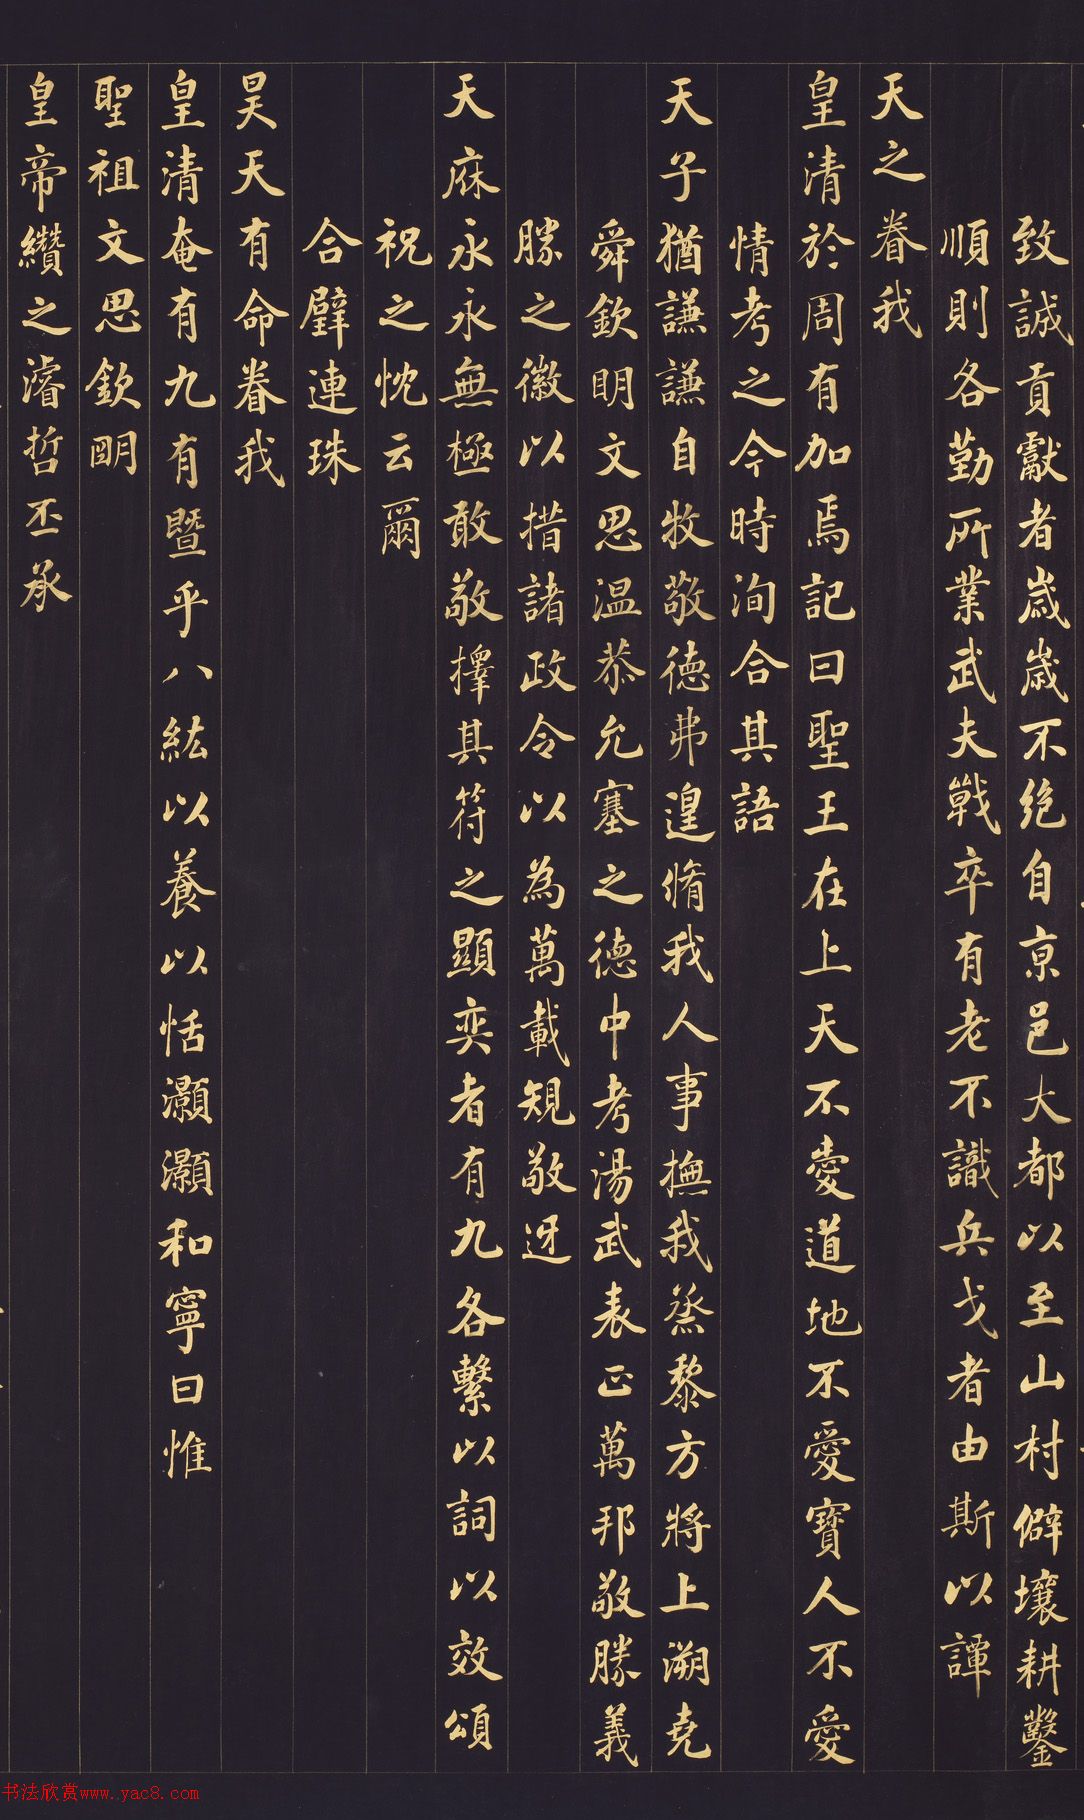 致誠貢獻者歲歲不絶自京邑大都以至山村僻壤耕鑿
順則各勤所業武夫戰卒有老不識兵戈者由斯以譚
天之眷我
皇清於周有加焉記曰聖王在上天不愛道地不愛寶人不愛
情考之今時洵合其語
天子猶謙謙自牧敬德弗遑脩我人事撫我蒸黎方將上溯堯
舜欽明文思温恭允塞之德中考湯武表正萬邦敬勝義
勝之徽以措諸政令以為萬載規敬迓
天庥永永無極敢敬擇其符之顯奕者有九各繫以詞以效頌
祝之忱云爾
合璧連珠
昊天有命眷我
皇清奄有九有暨乎八紘以養以恬灝灝和寧曰惟
聖祖文思欽明
皇帝纘之濬哲丕承
书法欣赏www.yac8.com